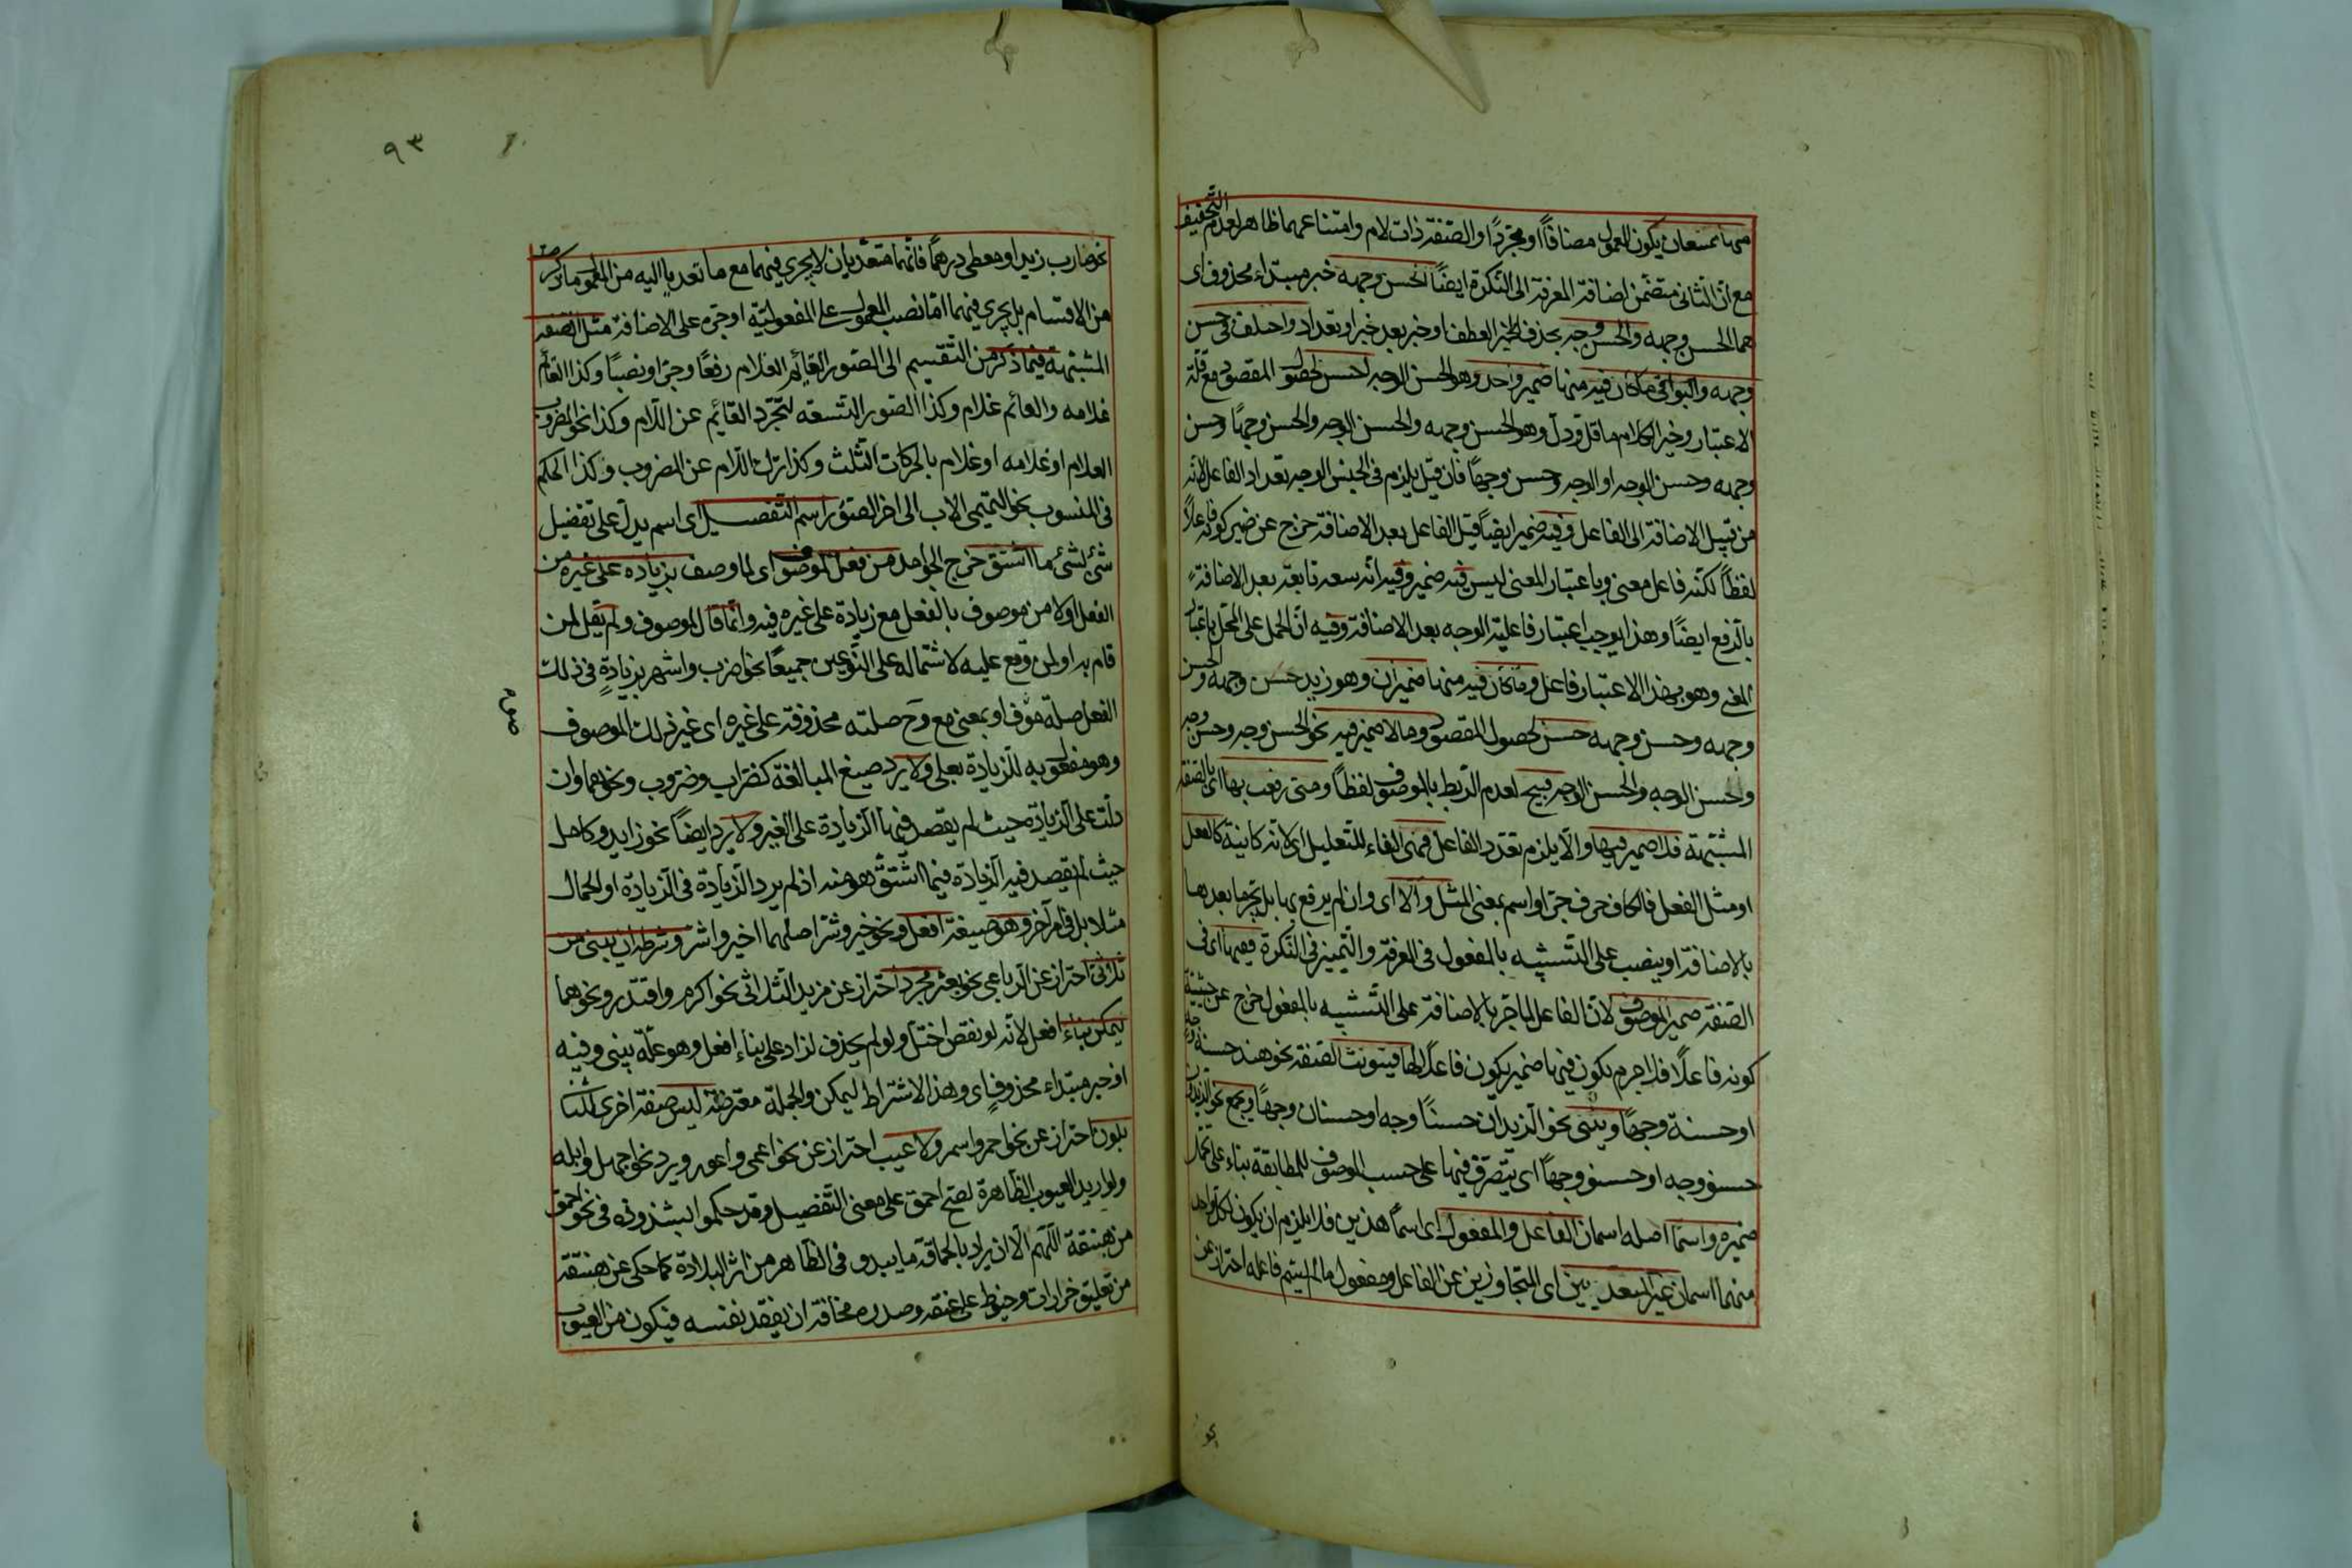 منها ممتنعان يكون المعمول مضافاً او مجرّداً والصفة ذات لام وامتناعهما ظاهر لعدم التخفيف
مع انّ الثانى متضمّن اضافة المعرفة الى النكرة ايضاً الحسن وجهه خبر مبتداء محذوف اى
هما الحسن وجهه والحسن وجه بحذف العطف او خبر بعد خبر او تعداد واختلف فى حسن
وجهه والبواقى ما كان فيه منها ضمير واحد وهو الحسن الوجه احسن لحصول المقصود مع قلّة
الاعتبار وخير الكلام ما قل ودلّ وهو الحسن وجهه والحسن الوجه والحسن وجهاً وحسن
وجهه وحسن الوجه او الوجه وحسن وجهاً فان قيل يلزم فى الحسن الوجه تعداد الفاعل لانّه
من قبيل الاضافة الى الفاعل وفيه ضمير ايضاً قيل الفاعل بعد الاضافة خرج عن كونه فاعلاً
لفظاً لكنّه فاعل معنى وباعتبار المعنى ليس فيه ضمير وفيه انّه بعد الاضافة
بالرفع ايضاً وهذا يوجب اعتبار فاعليّة الوجه بعد الاضافة وفيه انّ الحمل على المحلّ باعتبار
المعنى وهو بهذا الاعتبار فاعل وما كان فيه منها ضميران وهو زيد حسن وجهه والحسن
وجهه وحسن وجهه حسن لحصول المقصود وما لا ضمير فيه نحو الحسن وجه وحسن وجه
وحسن الوجه والحسن الوجه قبيح لعدم الرّبط بالموصوف لفظاً ومتى رفعت بها اى بالصفة
المشبّهة فلا ضمير فيها والّا يلزم تعدد الفاعل فهى الفاء للتعليل اى لانّه كاينة كالفعل
او مثل الفعل فالكاف حرف جرّ او اسم بمعنى المثل والّا اى وان لم يرفع بها بل يجر ما بعدها
بالاضافة او ينصب على التشبيه بالمفعول فى المعرفة والتّميز فى النّكرة ففيها اى فى
الصّفة ضمير الموصوف لانّ الفاعل لما جر بالاضافة على التّشبيه بالمفعول خرج عن حيثية
كونه فاعلاً فلا جرم يكون فيها ضمير يكون فاعلاً لها فيؤنث الصّفة نحو هند حسنة وجه
او حسنة وجهاً ويثنى نحو الزيدان حسنا وجه او حسنان وجهاً ويجمع نحو الزيدون
حسنو وجه او حسنون وجهاً اى يتصرّف فيها على حسب الموصوف للمطابقة بناء على تحمّل
ضميره واسما اصله اسمان الفاعل والمفعول اى اسما هذين فلا يلزم ان يكون لكل واحد
منهما اسمان غير المتعديين اى المتجاوزين عن الفاعل ومفعول ما لم يسم فاعله احتراز عن
٩٣
نحو ضارب زيدا ومعطى درهماً فانّهما متعدّيان لا يجرى فيهما مع ما تعديا اليه من المعمول ما ذكر
من الاقسام بل يجرى فيهما امّا نصب المعمول على المفعوليّة او جره على الاضافة مثل الصّفة
المشبّهة فيما ذكر من التّقسيم الى الصّور القائم الغلام رفعاً وجرّا ونصباً وكذا القائم
غلامه والقائم غلام وكذا الصّور التسعة لتجرّد القائم عن اللّام وكذا نحو المضروب
الغلام او غلامه او غلام بالحركات الثّلث وكذا ترك اللّام عن المضروب وكذا الحكم
فى المنسوب نحو التّميمى الاب الى اخر الصّور اسم التّفضيل اى اسم يدلّ على تفضيل
شئ لشئ ما اشتق خرج الجوامد من فعل لموصوف اى لما وصف بزيادة على غيره من
الفعل اولا من موصوف بالفعل مع زيادة على غيره فيه وانّما قال لموصوف ولم يقل لمن
قام به او لمن وقع عليه لاشتماله على النّوعين جميعاً نحو اضرب واشهر بزيادةٍ فى ذلك
الفعل صلة موصوف او بمعنى مع وح صلته محذوفة على غيره اى غير ذلك الموصوف
وهو مفعول به للزيادة بعلى ولا يرد صيغ المبالغة كضرّاب وضروب ونحوهما وان
دلّت على الزيادة حيث لم يقصد فيها الزيادة على الغير ولا يرد ايضاً نحو زايد وكامل
حيث لم يقصد فيه الزّيادة فيما اشتقّ هو منه اذ لم يرد الزّيادة فى الزّيادة او الكمال
مثلا بل فى امر آخر وهو صيغة افعل ونحو خير وشرّ اصلهما اخير واشرّ وشرطه ان يبنى من
ثلاثى احتراز عن الرّباعى نحو بعثر مجرد احتراز عن مزيد الثّلاثى نحو اكرم واقتدر ونحوهما
ليمكن بناء افعل لانّه لو نقص اختلّ ولو لم يحذف لزاد على بناء افعل وهو علّة يبنى وفيه
او خبر مبتداء محذوف اى وهذا الاشتراط ليمكن والجملة معترضة ليس صفة اخرى لثلاثى
بلون احتراز عن نحو احمر واسمر ولا عيب احتراز عن نحو اعمى واعور ويرد نحو اجهل وابله
ولو اريد العيوب الظّاهرة لصحّ احمق على معنى التّفضيل وقد حكموا بشذوذه فى نحو احمق
من هبنّقة اللّهم الّا ان يراد بالحماقة ما يبدو فى الظّاهر من اثر البلادة كما حكى عن هبنّقة
من تعليق خرزات وخيوط على عنقه وصدره مخافة ان يفقد نفسه فيكون من العيوب